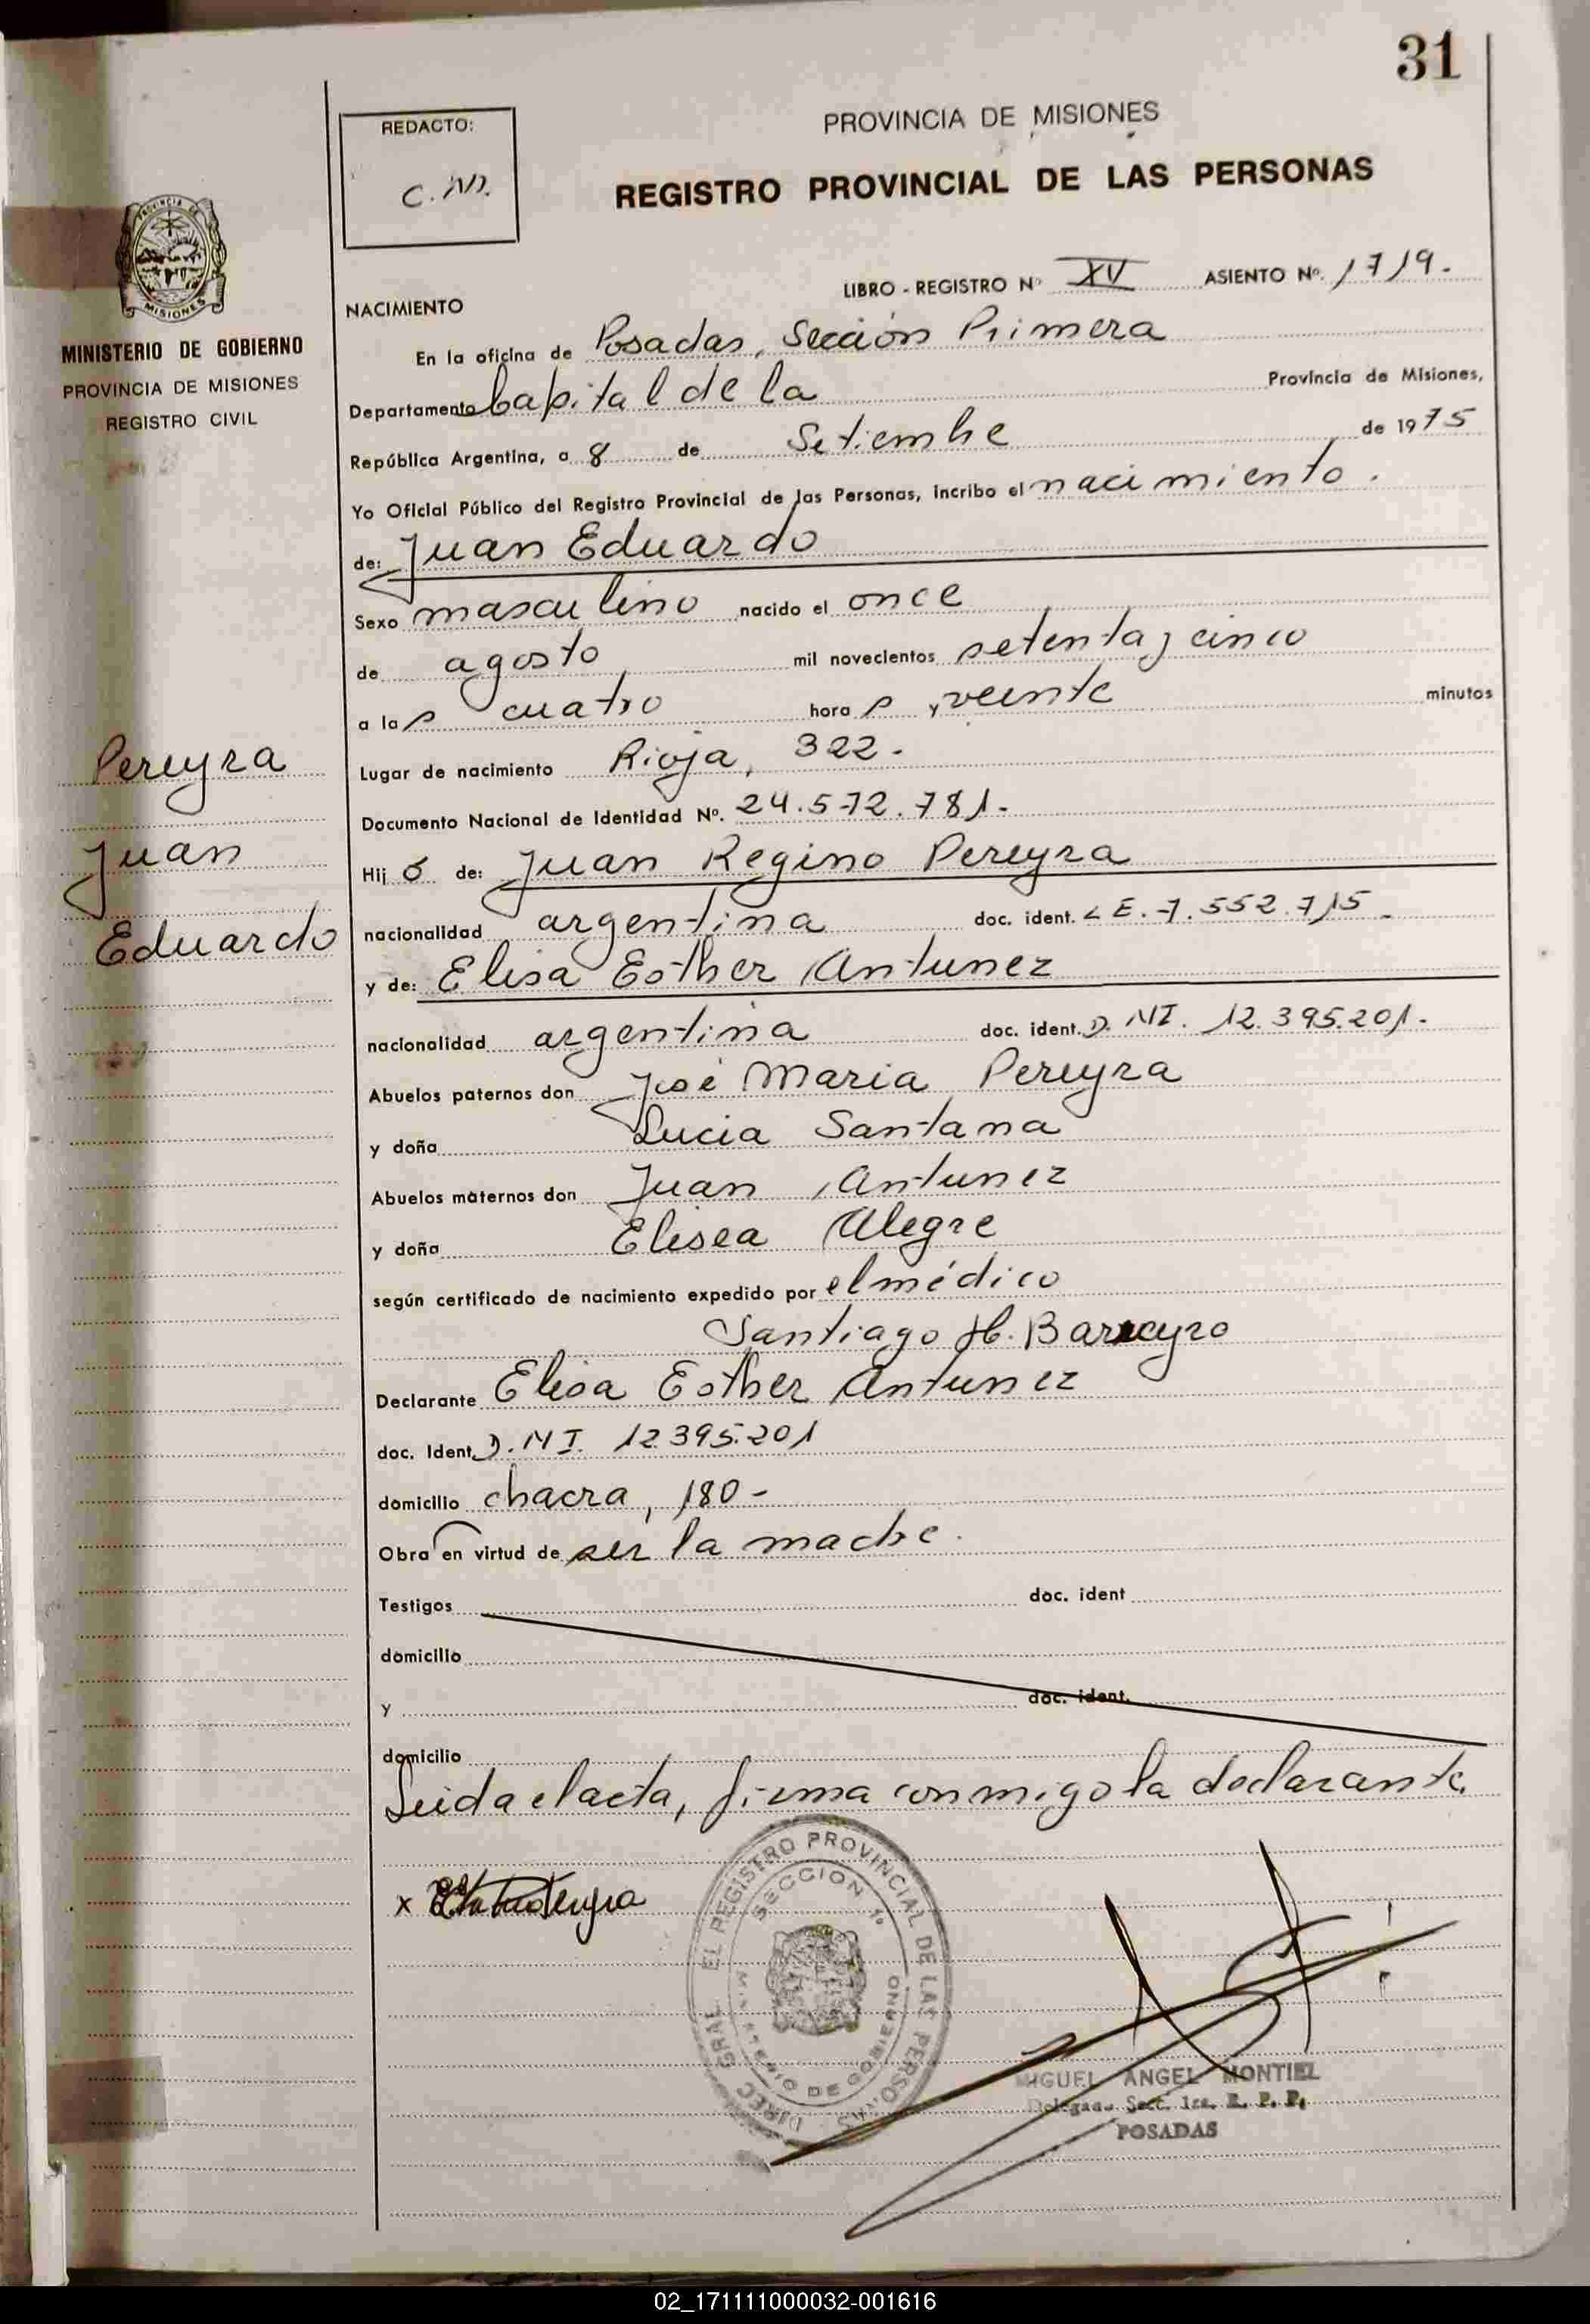 31
PROVINCIA DE MISIONES
REDACTO:
REGISTRO PROVINCIAL DE LAS PERSONAS
LIBRO - REGISTRO Nº XV ASIENTO Nº. 1719.
NACIMIENTO
MISIONES
MINISTERIO DE GOBIERNO
PROVINCIA DE MISIONES
REGISTRO CIVIL
En la oficina de Posadas, Sección Primera
Departamento Capital de la Provincia de Misiones,
República Argentina, a 8 de Setiembre de 1975
Yo Oficial Público del Registro Provincial de las Personas, incribo el nacimiento.
de: Juan Eduardo
Sexo masculino nacido el once
de agosto mil novecientos setenta y cinco
a las cuatro horas y veinte minutos
Lugar de nacimiento Rioja, 322.
Documento Nacional de Identidad Nº. 24.572.781.-
Pereyra
Juan
Eduardo
Hijo de: Juan Regino Pereyra
nacionalidad argentina doc. ident. L E. 7.552.715 -
y de: Elisa Esther Antunez
nacionalidad argentina doc. ident. D.NI. 12.395.201.-
Abuelos paternos don José Maria Pereyra
y doña Lucia Santana
Abuelos maternos don Juan Antunez
y doña Elisea Alegre
según certificado de nacimiento expedido por el médico
Santiago H. Barreyro
Declarante Elisa Esther Antunez
doc. Ident. D.NI. 12.395.201
domicilio chacra, 180-
Obra en virtud de ser la madre.
Testigos doc. ident
domicilio
y doc. ident.
domicilio
Leida el acta, firma conmigo la declarante.
x
DIREC. GRAL. EL REGISTRO PROVINCIAL DE LAS PERSONAS
SECCION 1º
MINISTERIO DE GOBIERNO
MIGUEL ANGEL MONTIEL
Delegado Secc. 1ra. R. P. P.
POSADAS
02_171111000032-001616